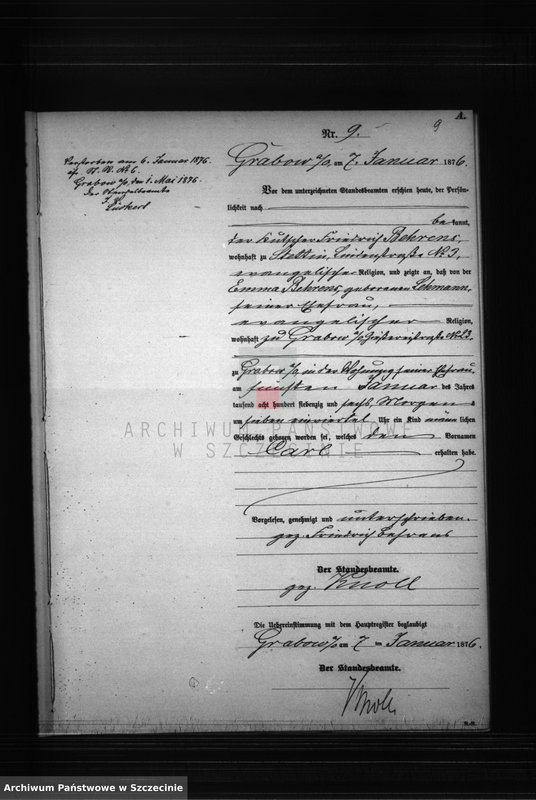 A.
9
Nr. 9.
Grabow a/O, am 7. Januar 1876.
Verstorben am 6. Januar 1876.
cfr. St. R. No 6.
Grabow a/O, den 1. Mai 1876.
Der Standesbeamte
Vor dem unterzeichneten Standesbeamten erschien heute, der Persön-
lichkeit nach
bekannt,
der Kutscher Friedrich Behrens,
wohnhaft zu Stettin, Lindenstraße No 3,
evangelischer Religion, und zeigte an, daß von der
Emma Behrens, geborenen Lehmann,
seiner Ehefrau,
evangelischer Religion,
wohnhaft zu Grabow a/O,
zu Grabow a/O in der Wohnung seiner Ehefrau,
am fünften Januar des Jahres
tausend acht hundert siebenzig und sechs, Morgens
um sieben einviertel Uhr ein Kind männlichen
Geschlechts geboren worden sei, welches den Vornamen
Carl erhalten habe.
Vorgelesen, genehmigt und unterschrieben.
gez. Friedrich Behrens
Der Standesbeamte.
gez. Knoll
Die Uebereinstimmung mit dem Hauptregister beglaubigt
Grabow a/O am 7 ten Januar 1876.
Der Standesbeamte.
Knoll
ARCHIWUM PAŃSTWOWE
W SZCZECINIE
Archiwum Państwowe w Szczecinie